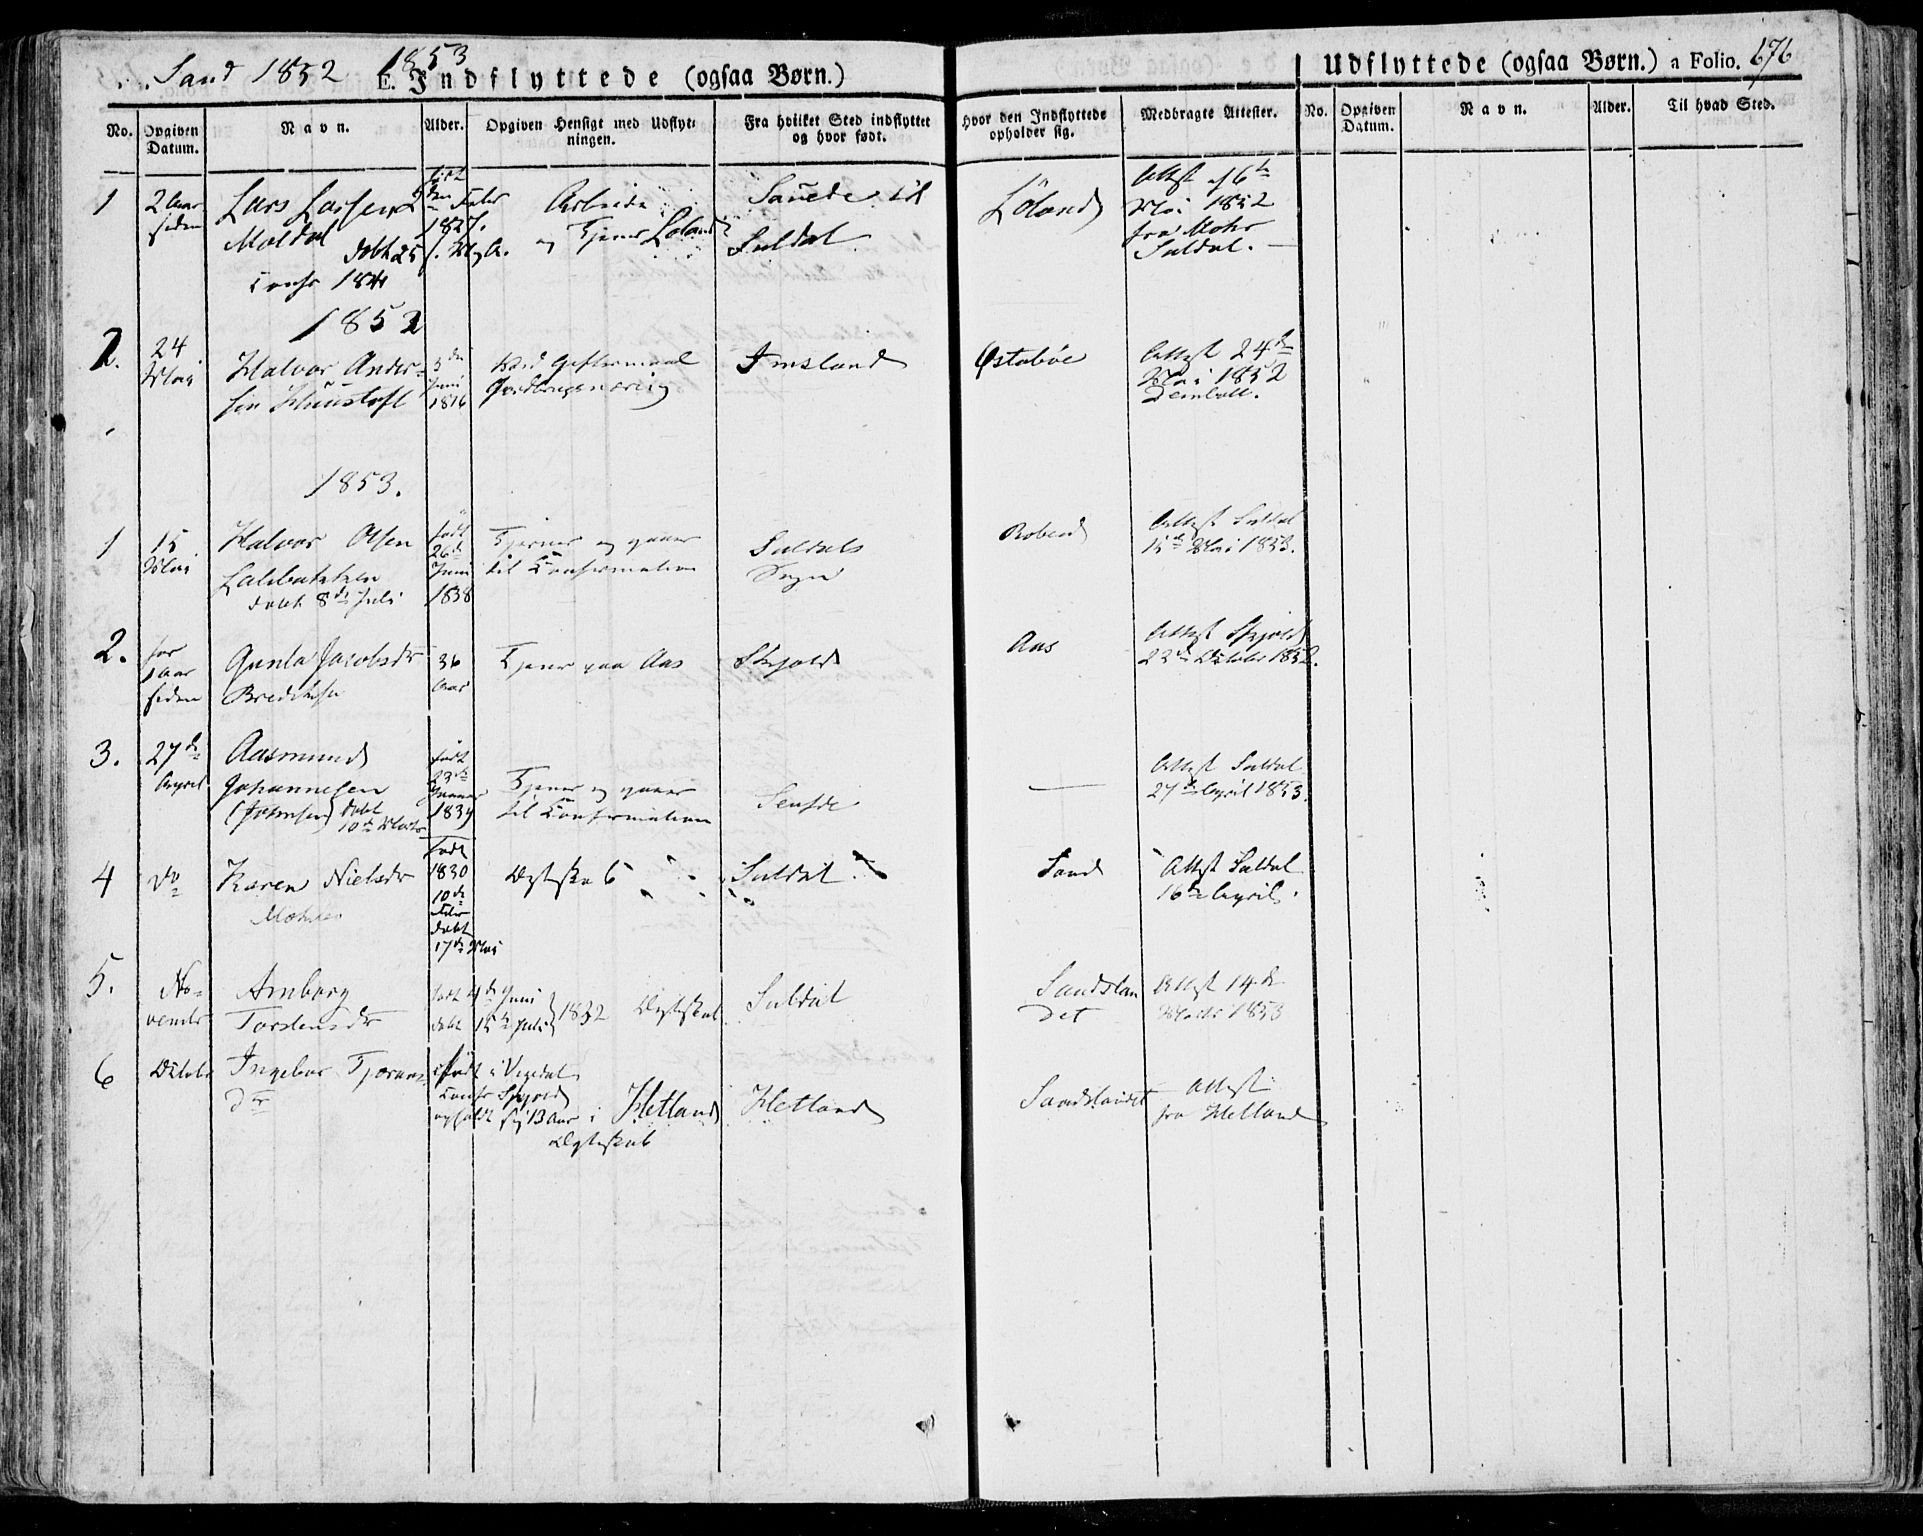 Sand 1852 1853
E. Indflyttede (ogsaa Børn.)
Udflyttede (ogsaa Børn.) a Folio. 676
No. Opgiven Datum. Navn. Alder. Opgiven Hensigt med Udflytningen. Fra hvilket Sted indflyttet og hvor født. Hvor den Indflyttede opholder sig. Medbragte Attester. No. Opgiven Datum. Navn. Alder. Til hvad Sted.
1 2 Aar siden
Lars Larsen
Moldal
døbt 25
Confr 1841
født
Febr
1827.
Arbeide
og Tjener Løland
Suldal
Løland
Attest 16de
Mai 1852
fra Mohr
Suldal.
1852
2. 24 Mai
Halvor Ander-
sen
3die
Juni
1816
Ved Gift
Imsland
Østabøe
Attest 24de
Mai 1852
1853.
1 15 Mai
Halvor Olsen
døbt 8de Juli
født
26de
Juni
1838
Tjener og gaaer
til Confirmation
Suldals
Sogn
Attest Suldal
15de Mai 1853.
2. for
1 Aar
siden
Gunla Jacobsdr
36
Aar
Tjener paa Aas
Skjold
Aas
Attest Skjold
23de October 1852.
3. 27de
April
Aasmund
Johannesen
døbt
født
23de
Januar
1839
Tjener og gaaer
til Confirmation
Attest Suldal
27de April 1853.
4 Do
Karen Nielsdr
født
1830
10de
døbt
17de Mai
Ægteskab
Suldal
Sand
Attest Suldal
16de April.
5. No-
vembr
Amborg
Torstensdr
født 4de Juni
døbt 15de Juli
1832
Ægteskab
Suldal
Sandslan
det
Attest 14de
1853
6 October
Ingebor
dtr
født i
Confr Skjold
opholdt sig 13 Aar i Hetland
Ægteskab
Hetland
Sandslandet
Attest
fra Hetland